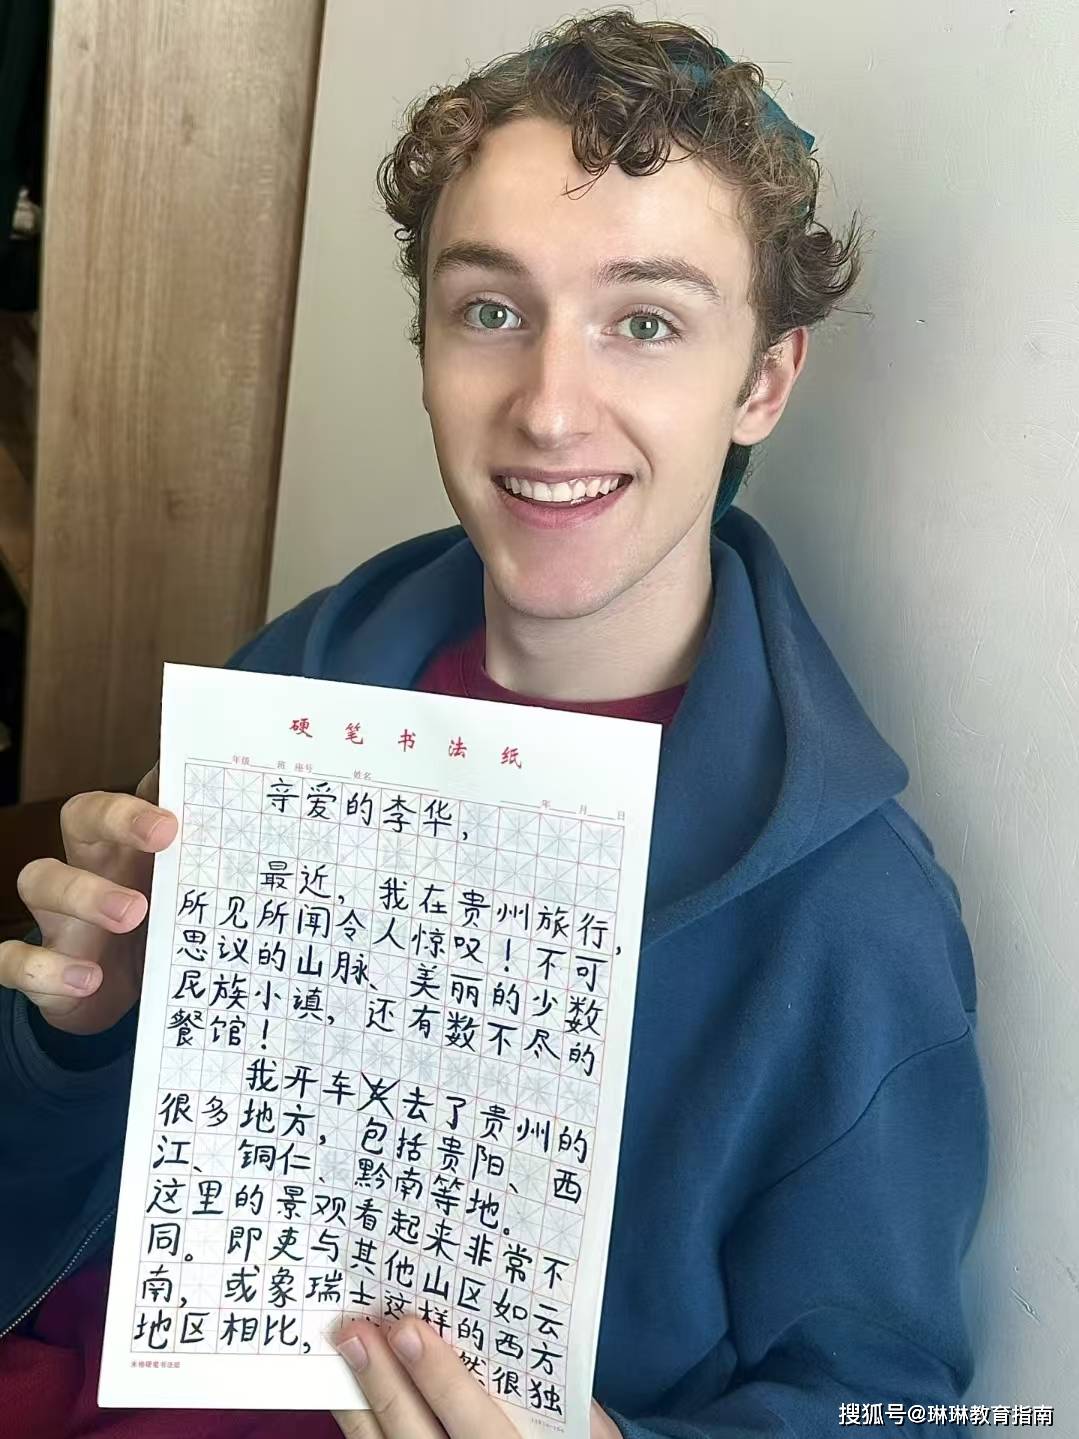 硬笔书法纸
年级 班 座号 姓名
年 月 日
亲爱的李华，
最近，我在贵州旅行，
所见所闻令人惊叹！不可
思议的山脉、美丽的少数
民族小镇，还有数不尽的
餐馆！
我开车去了贵州的
很多地方，包括贵阳、西
江、铜仁、黔南等地。
这里的景观看起来非常不
同。即吏与其他山区如云
南，或象瑞士这样的西方
地区相比，然很独
米格硬笔书法纸
搜狐号@琳琳教育指南